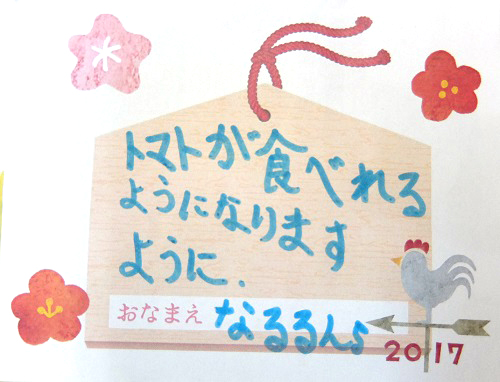 トマトが食べれる
ようになります
ように.
おなまえ なるるん♪
2017